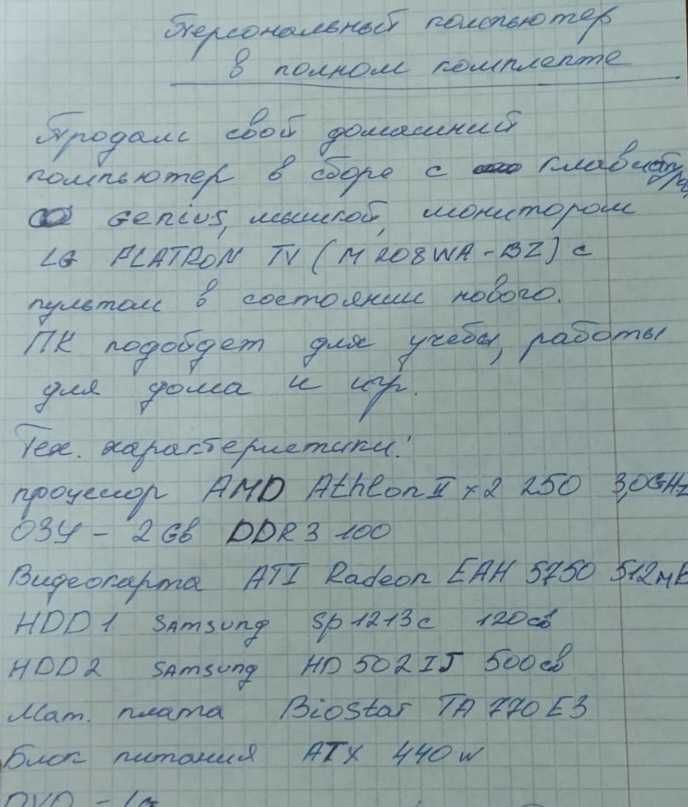 Персональный компьютер
в полном комплекте
Продам свой домашний
компьютер в сборе с клавиатурой
Genius, мышкой, монитором
LG FLATRON TV (M208WA-BZ) с
пультом в состоянии нового.
ПК подойдет для учебы, работы
для дома и игр.
Тех. характеристики:
процессор AMD Athlon II x2 250 3,0GHz
ОЗУ - 2Gb DDR3 100
Видеокарта ATI Radeon EAH 5750 512мв
HDD1 Samsung SP1213c 120Gb
HDD2 Samsung HD502IJ 500Gb
Мат. плата Biostar TA770E3
Блок питания ATX 440w
DVD - LG